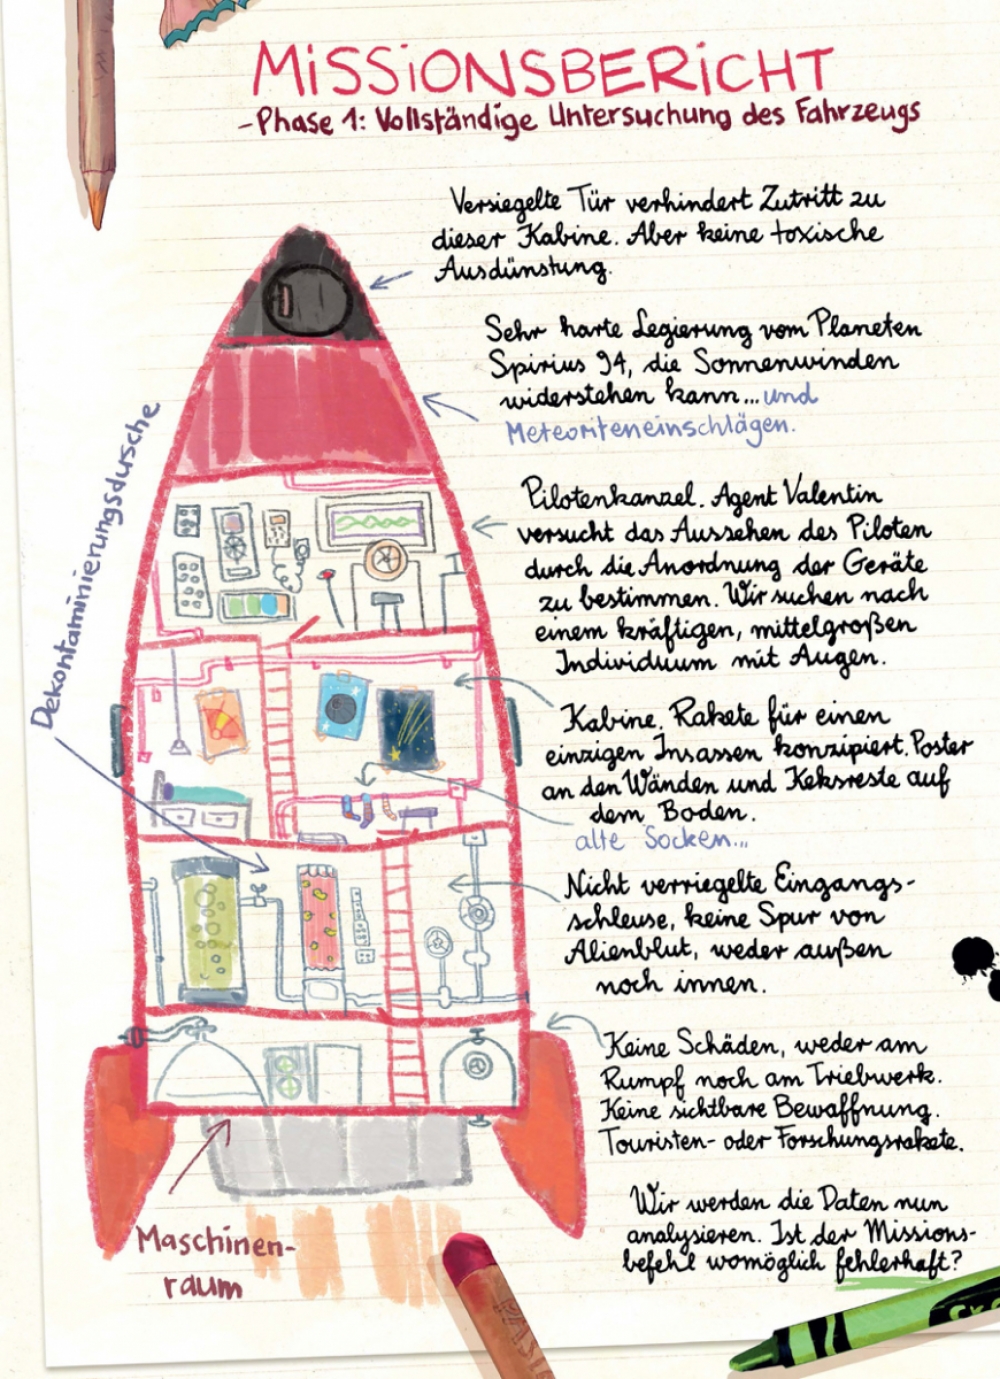 MISSIONSBERICHT
-Phase 1: Vollständige Untersuchung des Fahrzeugs
Versiegelte Tür verhindert Zutritt zu
dieser Kabine. Aber keine toxische
Ausdünstung.
Sehr harte Legierung vom Planeten
Spirius 94, die Sonnenwinden
widerstehen kann... und
Meteoriteneinschlägen.
Dekontaminierungsdusche
Pilotenkanzel. Agent Valentin
versucht das Aussehen des Piloten
durch die Anordnung der Geräte
zu bestimmen. Wir suchen nach
einem kräftigen, mittelgroßen
Individuum mit Augen.
Kabine. Rakete für einen
einzigen Insassen konzipiert. Poster
an den Wänden und Keksreste auf
dem Boden.
alte Socken...
Nicht verriegelte Eingangs-
schleuse, keine Spur von
Alienblut, weder außen
noch innen.
Keine Schäden, weder am
Rumpf noch am Triebwerk.
Keine sichtbare Bewaffnung.
Touristen- oder Forschungsrakete.
Maschinen-
raum
Wir werden die Daten nun
analysieren. Ist der Missions-
befehl womöglich fehlerhaft?